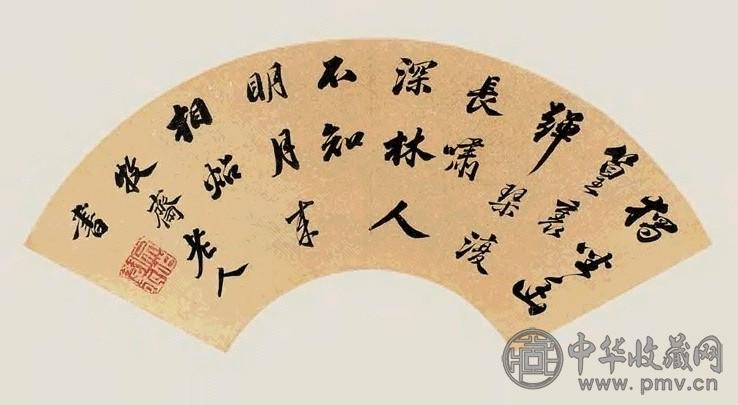 獨坐幽
篁裏
彈琴復
長嘯
深林人
不知
明月来
相炤
牧齋老人
書
中华收藏网
www.pmv.cn